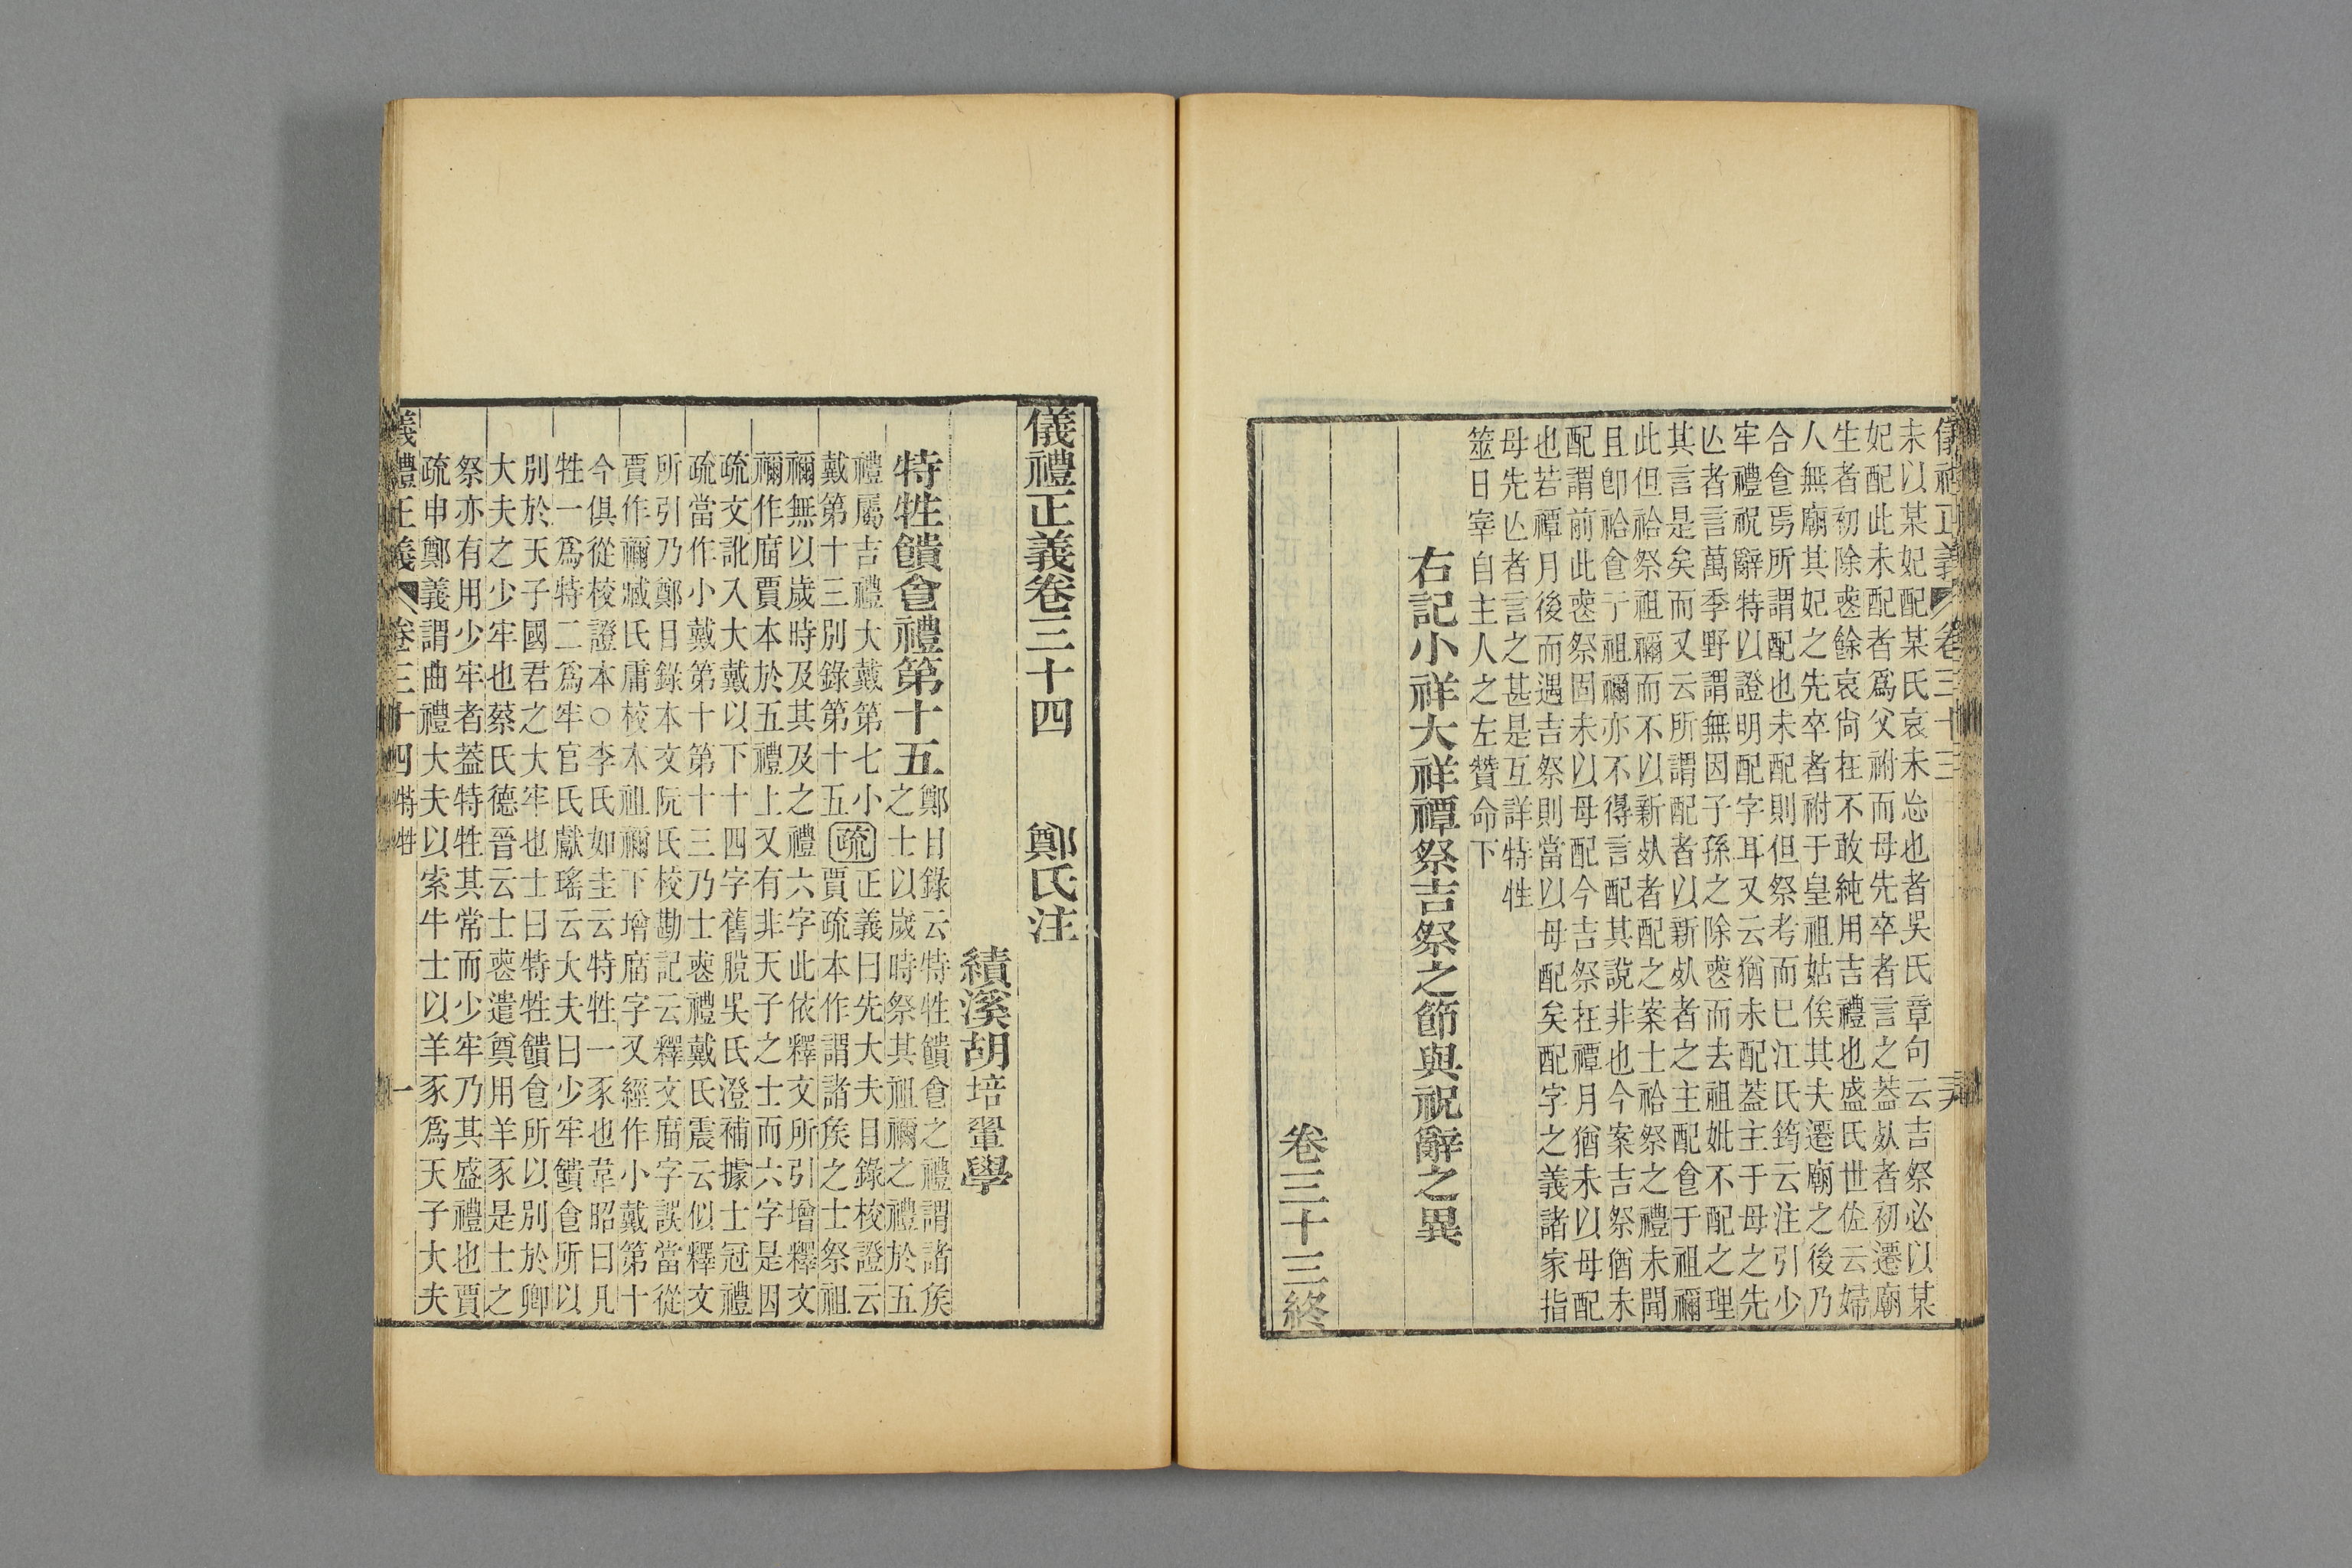 儀禮正義 卷三十三
未以某妃配某氏哀未忘也者吳氏章句云吉祭必以某
妃配此未配者爲父祔而母先卒者言之蓋𣦸者初遷廟
生者初除䘮餘哀尙在不敢純用吉禮也盛氏世佐云婦
人無廟其妃之先卒者祔于皇祖姑俟其夫遷廟之後乃
合食焉所謂配也未配則但祭考而已江氏筠云注引少
牢禮祝辭特以證明配字耳又云猶未配蓋主于母之先
亾者言萬季野謂無因子孫之除䘮而去祖妣不配之理
其言是矣而又云所謂配者以新𣦸者之主配食于祖禰
此但祫祭祖禰而不以新𣦸者配之案士祫祭之禮未聞
且卽祫食于祖禰亦不得言配其說非也今案吉祭猶未
配謂前此䘮祭固未以母配今吉祭在禫月猶未以母配
也若禫月後而遇吉祭則當以母配矣配字之義諸家指
母先亾者言之甚是互詳特牲
筮日宰自主人之左贊命下
右記小祥大祥禫祭吉祭之節與祝辭之異
卷三十三終
儀禮正義卷三十四 鄭氏注
績溪胡培翬學
特牲饋食禮第十五
鄭目錄云特牲饋食之禮謂諸矦
之士以歲時祭其祖禰之禮於五
禮屬吉禮大戴第七小
戴第十三別錄第十五
疏
正義曰先大夫目錄校證云
賈疏本作謂諸矦之士祭祖
禰無以歲時及其及之禮六字此依釋文所引增釋文
禰作庿賈本於五禮上又有非天子之士而六字是因
疏文訛入大戴以下十四字舊脫吳氏澄補據士冠禮
疏當作小戴第十第十三乃士䘮禮戴氏震云似釋文
所引乃鄭目錄本文阮氏校勘記云釋文庿字誤當從
賈作禰臧氏庸校本祖禰下增庿字又經作小戴第十
今俱從校證本○李氏如圭云特牲一豕也韋昭曰凡
牲一爲特二爲牢官氏獻瑤云大夫曰少牢饋食所以
別於天子國君之大牢也士曰特牲饋食所以別於卿
大夫之少牢也蔡氏德晉云士䘮遣奠用羊豕是士之
祭亦有用少牢者蓋特牲其常而少牢乃其盛禮也賈
疏申鄭義謂曲禮大夫以索牛士以羊豕爲天子大夫
儀禮正義 卷三十四 特牲 一